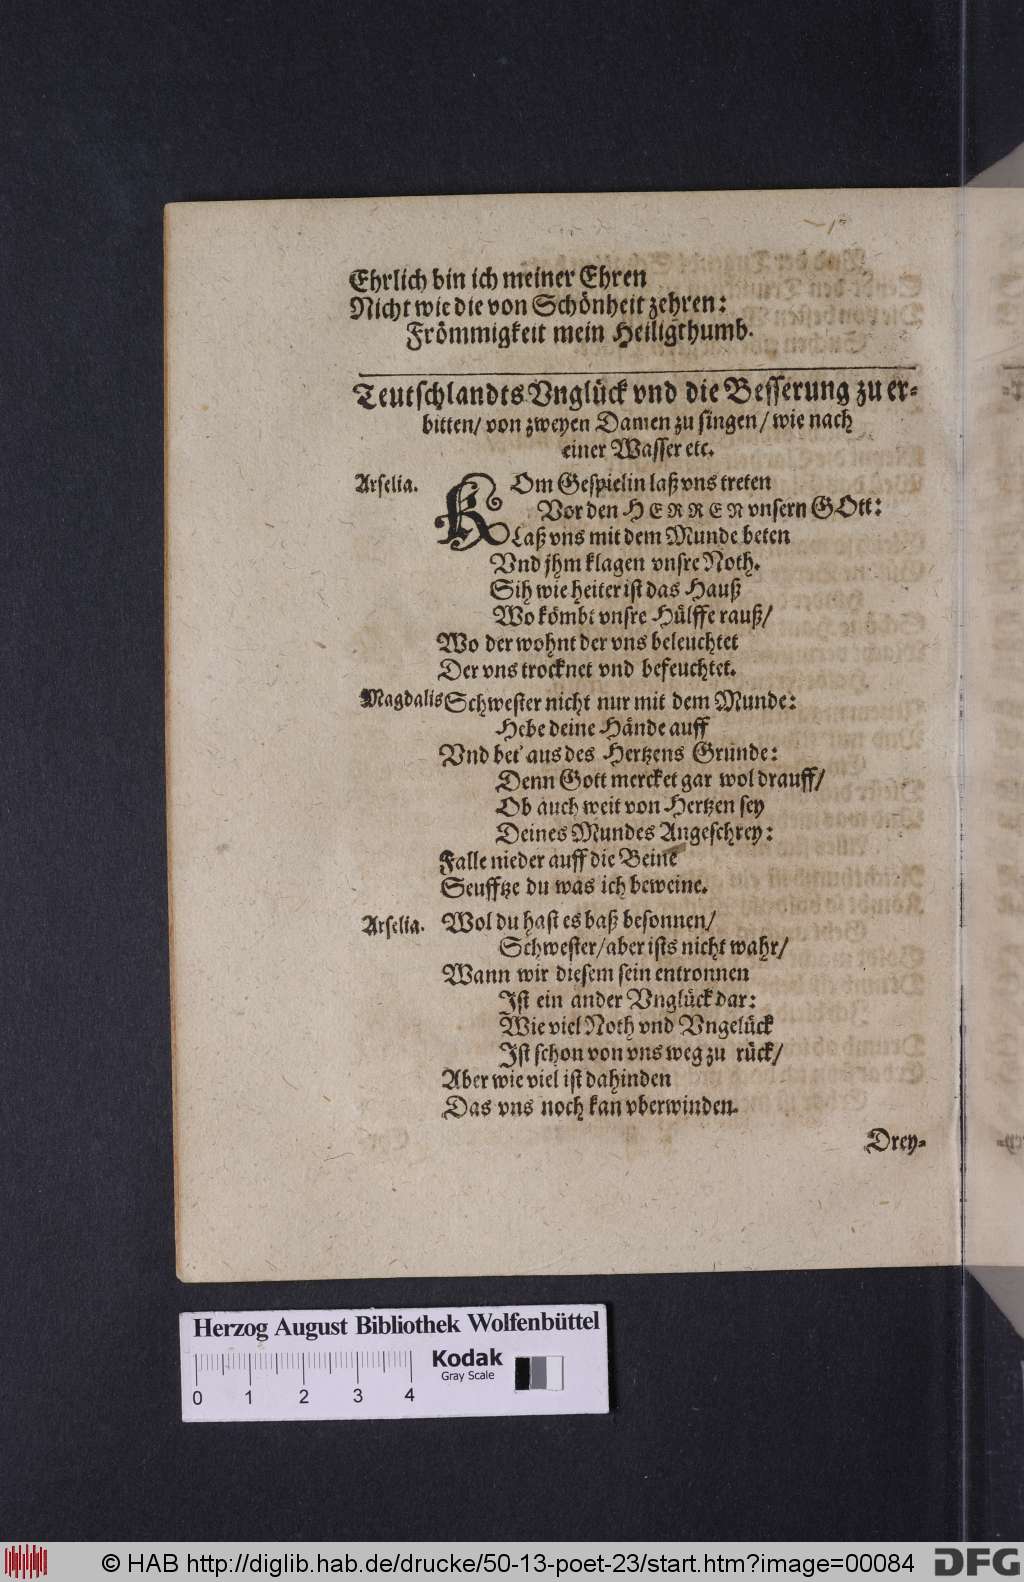 Ehrlich bin ich meiner Ehren
Nicht wie die von Schönheit zehren:
Frömmigkeit mein Heiligthumb.
Teutschlandts Vnglück vnd die Besserung zu er-
bitten/ von zweyen Damen zu singen/ wie nach
einer Wasser etc.
Arselia. KOm Gespielin laß vns treten
Vor den HERREN vnsern GOtt:
Laß vns mit dem Munde beten
Vnd jhm klagen vnsre Noth.
Sih wie heiter ist das Hauß
Wo kömbt vnsre Hülffe rauß/
Wo der wohnt der vns beleuchtet
Der vns trocknet vnd befeuchtet.
Magdalis Schwester nicht nur mit dem Munde:
Hebe deine Hände auff
Vnd bet' aus des Hertzens Grunde:
Denn Gott mercket gar wol drauff/
Ob auch weit von Hertzen sey
Deines Mundes Angeschrey:
Falle nieder auff die Beine
Seufftze du was ich beweine.
Arselia. Wol du hast es baß besonnen/
Schwester/ aber ists nicht wahr/
Wann wir diesem sein entronnen
Ist ein ander Vnglück dar:
Wie viel Noth vnd Vngelück
Ist schon von vns weg zu rück/
Aber wie viel ist dahinden
Das vns noch kan vberwinden.
Drey-
Herzog August Bibliothek Wolfenbüttel
Kodak
Gray Scale
0 1 2 3 4
© HAB http://diglib.hab.de/drucke/50-13-poet-23/start.htm?image=00084
DFG